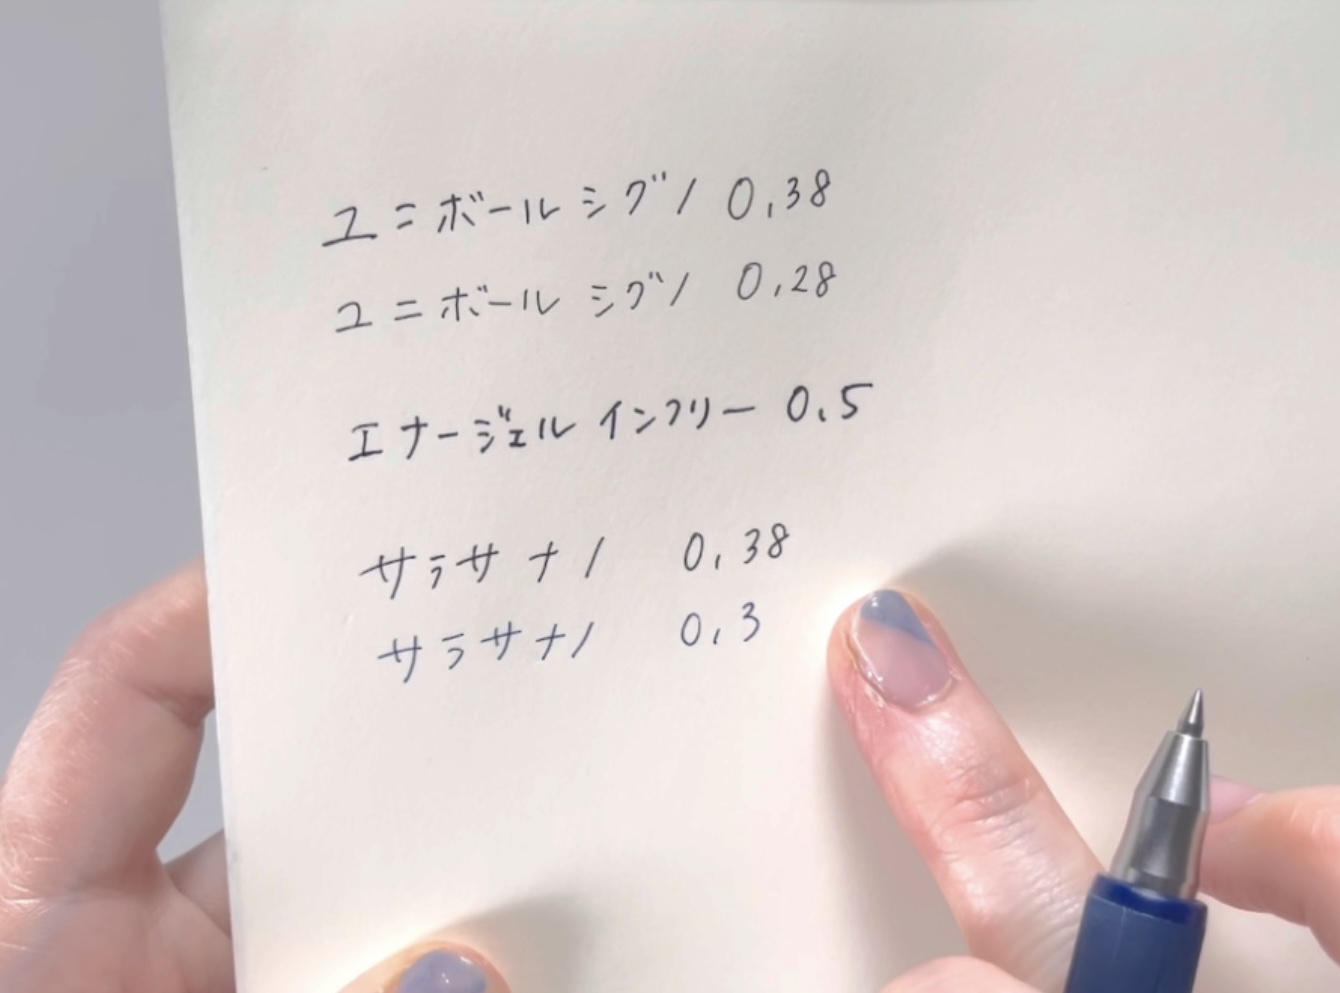 ユニボールシグノ 0.38
ユニボールシグノ 0.28
エナージェルインフリー 0.5
サラサナノ 0.38
サラサナノ 0.3